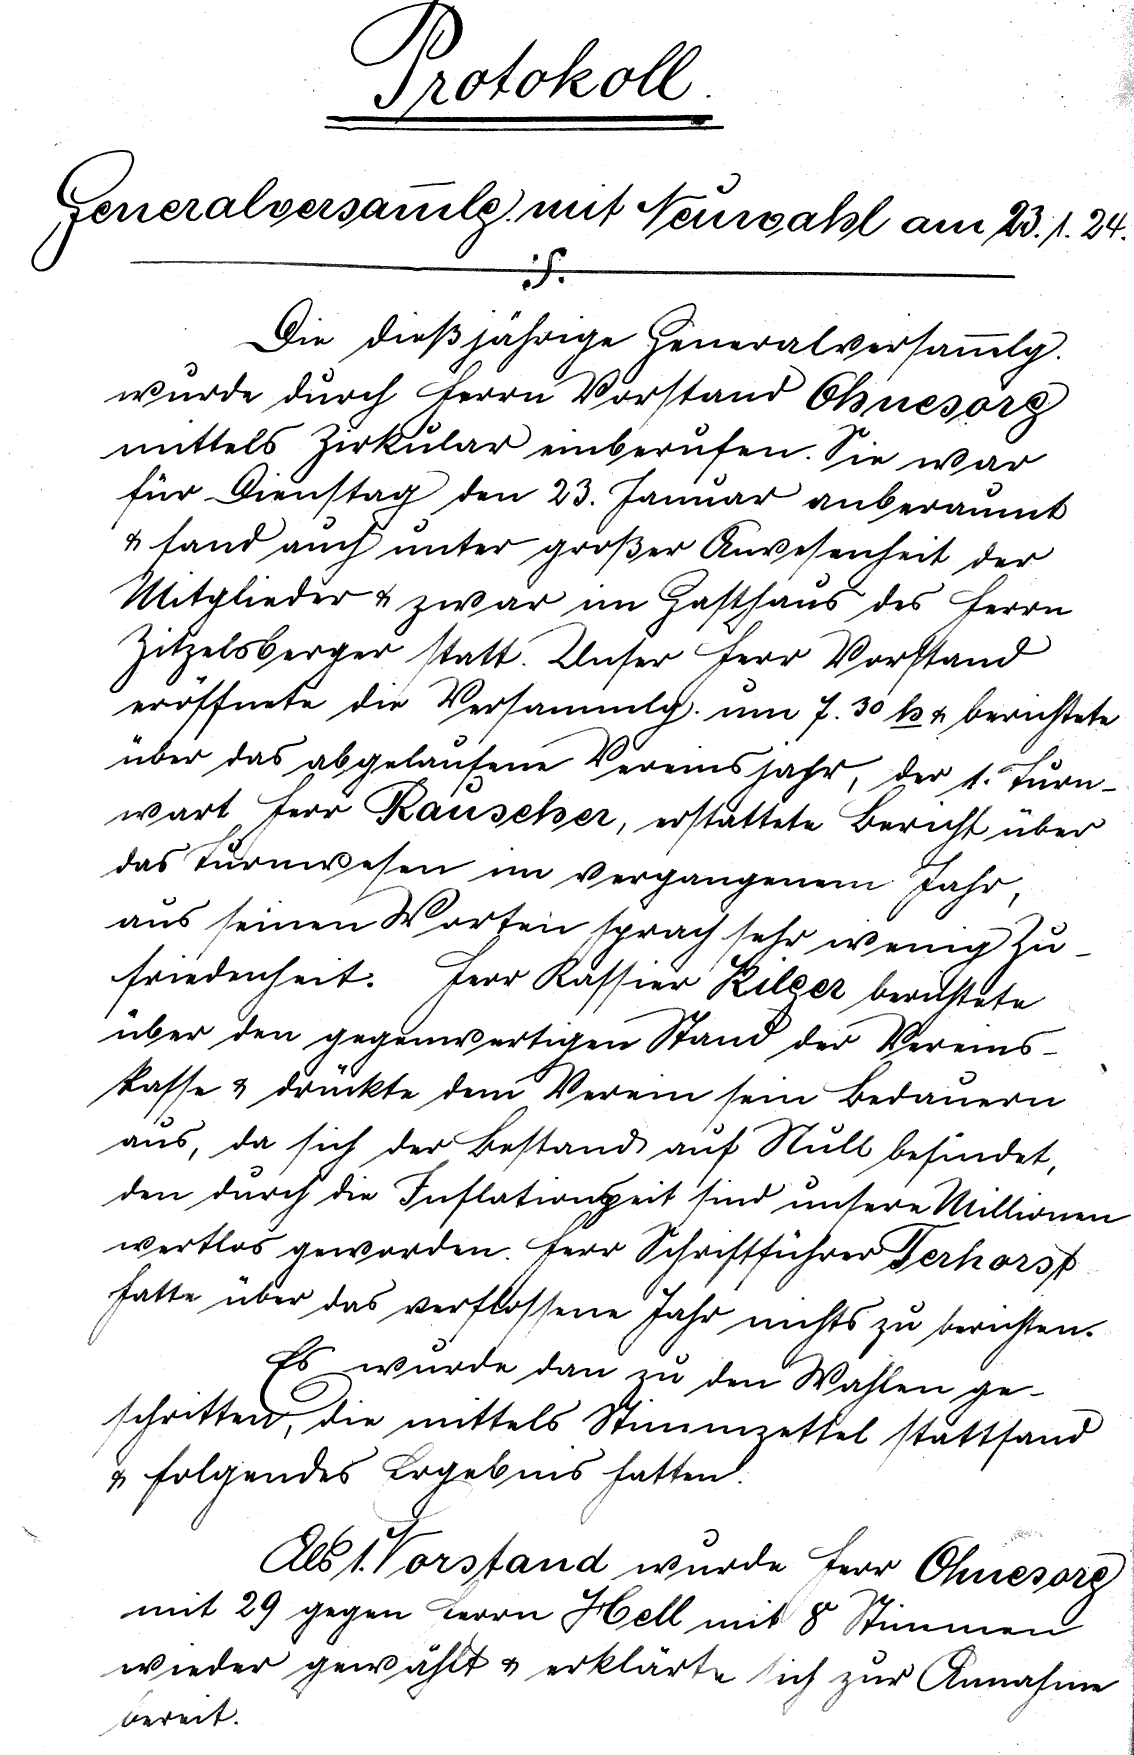 Protokoll.
Generalversam̅lg. mit Neuwahl am 23.1.24.
Die dießjährige Generalversam̅lg.
wurde durch Herrn Vorstand Ohnesorg
mittels Zirkular einberufen. Sie war
für Dienstag den 23. Januar anberaumt
& fand auch unter großer Anwesenheit der
Mitglieder & zwar im Gasthaus des Herrn
Zitzelsberger statt. Unser Herr Vorstand
eröffnete die Versammlg. um 7.30 h & berichtete
über das abgelaufene Vereinsjahr, der 1. Turn-
wart Herr Rauscher, erstattete Bericht über
das Turnwesen im vergangenem Jahr,
aus seinen Worten sprach sehr wenig Zu-
friedenheit. Herr Kassier Kilger berichtete
über den gegenwertigen Stand der Vereins-
kasse & drückte dem Verein sein Bedauern
aus, da sich der Bestand auf Null befindet,
den durch die Inflationszeit sind unsere Millionen
wertlos geworden. Herr Schriftführer Terhorst
hatte über das verflossene Jahr nichts zu berichten.
Es wurde dan zu den Wahlen ge-
schritten, die mittels Stimmzettel stattfand
& folgendes Ergebnis hatten.
Als 1. Vorstand wurde Herr Ohnesorg
mit 29 gegen Herrn Hell mit 8 Stimmen
wieder gewählt & erklärte sich zur Annahme
bereit.